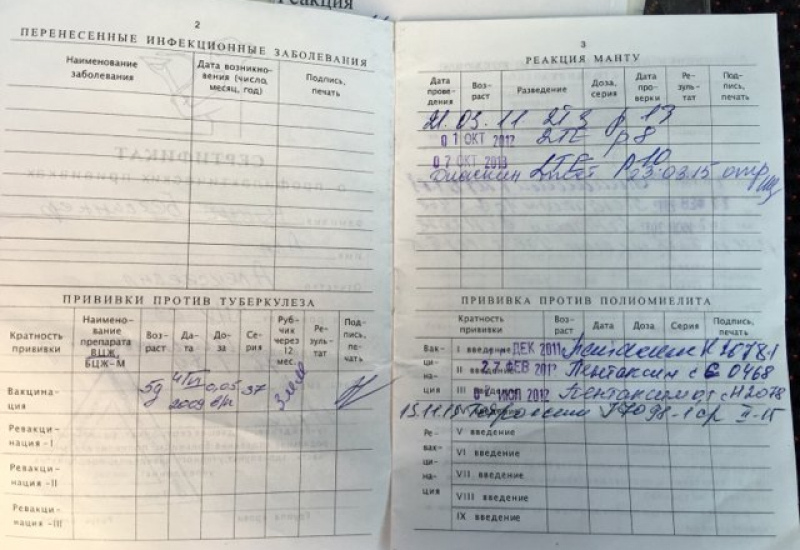 Реакция
2
ПЕРЕНЕСЕННЫЕ ИНФЕКЦИОННЫЕ ЗАБОЛЕВАНИЯ
Наименование заболевания
Дата возникно-вения (число, месяц, год)
Подпись, печать
ПРИВИВКИ ПРОТИВ ТУБЕРКУЛЕЗА
Кратность прививки
Наимено-вание препарата ВЦЖ, БЦЖ-М
Воз-раст
Да-та
До-за
Се-рия
Руб-чик через 12 мес.
Ре-зуль-тат
Под-пись, пе-чать
Вакцина-ция
5д
2009
0,05
37
3 мм
Ревакци-нация -I
Ревакци-нация -II
Ревакци-нация -III
3
РЕАКЦИЯ МАНТУ
Дата прове-дения
Воз-раст
Разведение
Доза, серия
Дата про-верки
Ре-зуль-тат
Под-пись, печать
21.03.11 2ТЕ р 13
01 ОКТ 2012 2ТЕ р 8
07 ОКТ 2013 2ТЕ р 10
Диаскин 23.03.15 отр
ПРИВИВКА ПРОТИВ ПОЛИОМИЕЛИТА
Кратность прививки
Возраст
Дата
Доза
Серия
Подпись, печать
Вак-ци-на-ция
I введение ДЕК 2011 Пентаксим
II введение 27 ФЕВ 2012 Пентаксим с 0468
III введение 02 ИЮЛ 2012 Пентаксим от с H2078
15.11.15
Ре-вак-ци-на-ция
V введение
VI введение
VII введение
VIII введение
IX введение